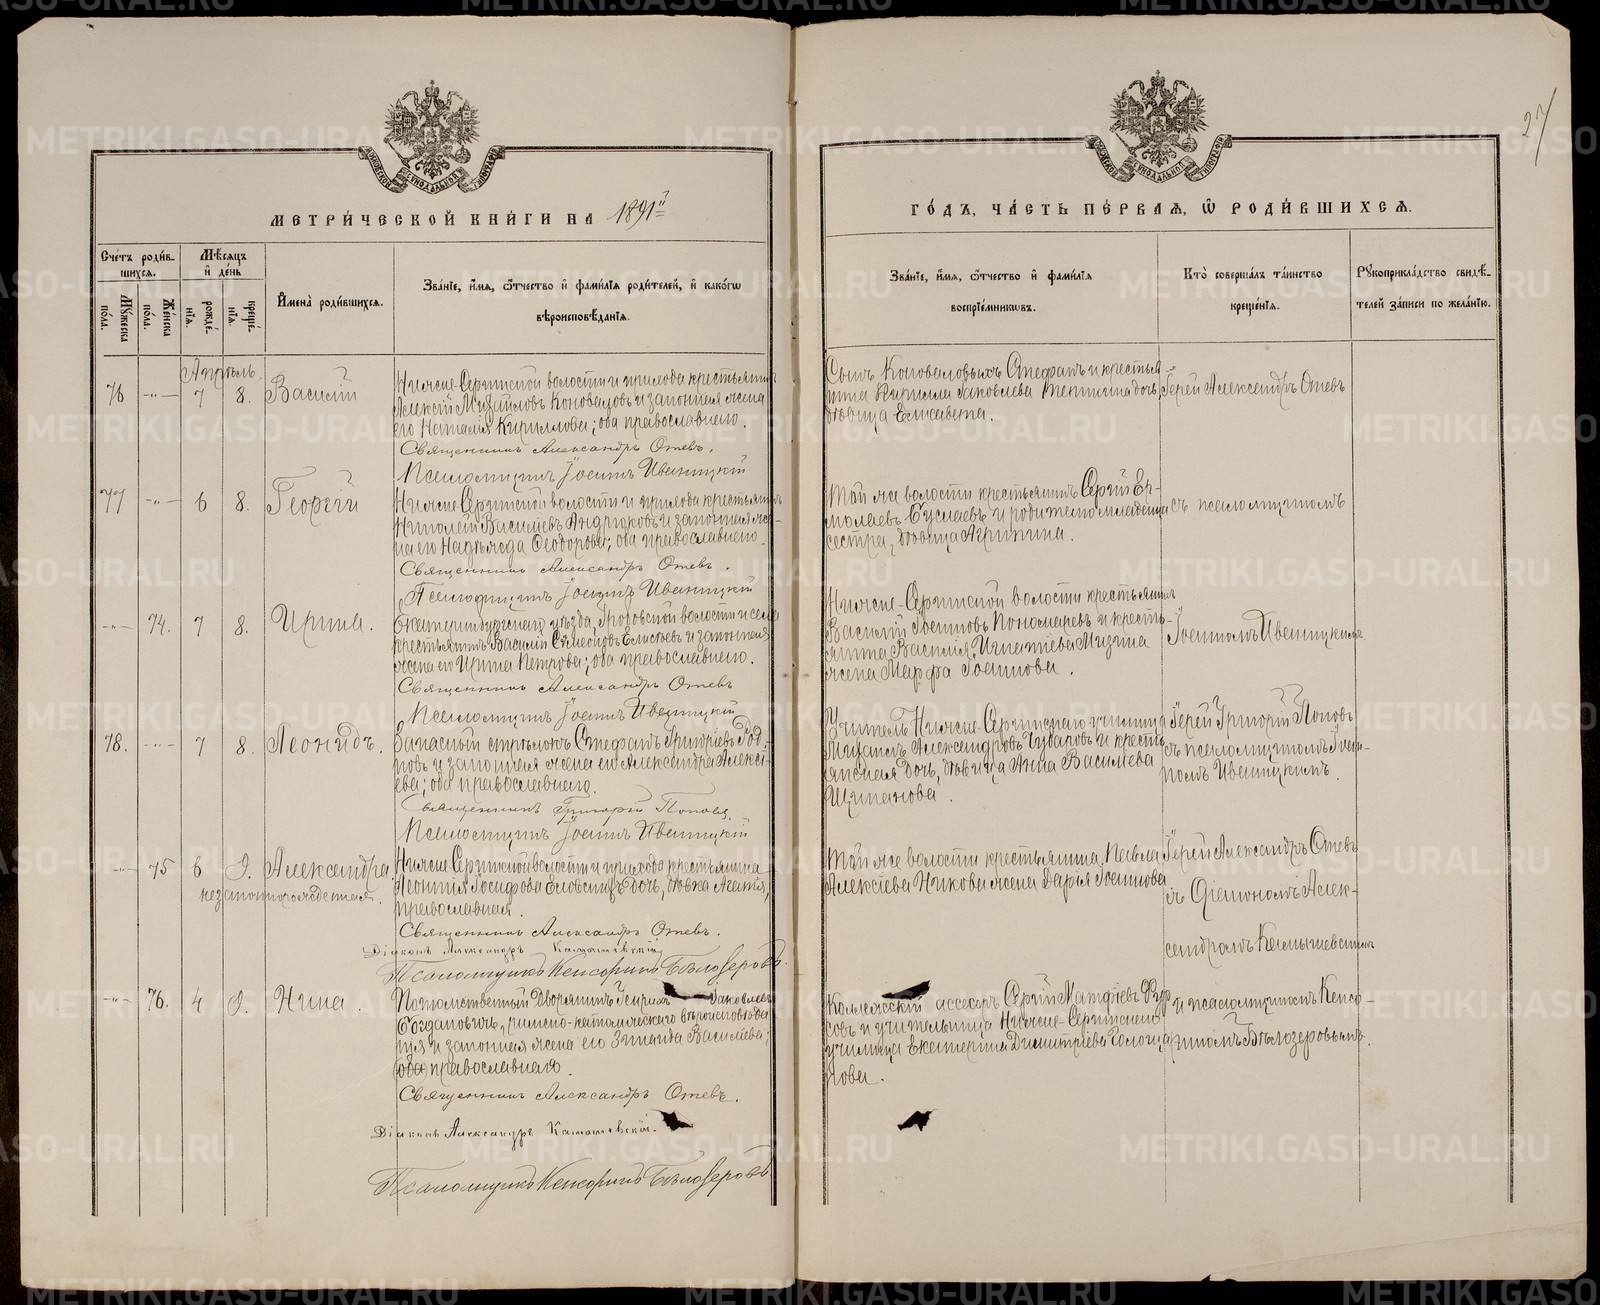 27
МЕТРИ́ЧЕСКОЙ КНИ́ГИ НА 1891й
ГО́ДЪ, ЧА́СТЬ ПЕ́РВАѦ, Ѽ РОДИ́ВШИХСѦ.
Сче́тъ роди́в-
шихсѧ.
Му́жеска
по́ла.
Же́нска
по́ла.
Мѣ́сѧцъ
и҆ де́нь
рожде́-
нїѧ.
креще́-
нїѧ.
И҆мена̀ роди́вшихсѧ.
Зва́нїе, и҆́мѧ, ѻ҆́тчество и҆ фами́лїѧ роди́телей, и҆ како́гѡ
вѣроисповѣ́данїѧ.
Зва́нїе, и҆́мѧ, ѻ҆́тчество и҆ фами́лїѧ
воспрїе́мникѡвъ.
Кто̀ соверша́лъ та́инство
креще́нїѧ.
Рукоприкла́дство свидѣ́-
телей за́писи по жела́нїю.
Апрѣль.
76 -„- 7 8. Василій
Нижне-Сергинской волости и прихода крестьянинъ
Алексій Михайловъ Коноваловъ и законная жена
его Наталія Кириллова; оба православнаго.
Священникъ Александръ Отевъ.
Псаломщикъ Іоаннъ Ивеницкій
Сынъ Коноваловыхъ Стефанъ и крестья-
нина Кирилла Яковлева дочь,
дѣвица Елисавета.
Іерей Александръ Отевъ
77 -„- 6 8. Георгій
Нижне-Сергинской волости и прихода крестьянинъ
Николай Васильевъ Андрюковъ и законная же-
на его Надежда Ѳеодорова; оба православнаго.
Священникъ Александръ Отевъ.
Псаломщикъ Іоаннъ Ивеницкій
Той же волости крестьянинъ Сергій Ер-
молаевъ Буслаевъ и родителю младенца
сестра, дѣвица Агрипина.
съ псаломщикомъ
-„- 74. 7 8. Ирина.
Екатеринбургскаго уѣзда, Гробовской волости и села
крестьянинъ Василій Симеоновъ Елисѣевъ и законная
жена его Ирина Петрова; оба православнаго.
Священникъ Александръ Отевъ
Псаломщикъ Іоаннъ Ивеницкій
Нижне-Сергинской волости крестьянинъ
Василій Іоанновъ Пономаревъ и кресть-
янина Василія Игнатіева Мизина
жена Марфа Іоаннова.
Іоанномъ Ивеницкимъ
78. -„- 7 8. Леонидъ.
Запасный стрѣлокъ Стефанъ Григоріевъ
и законная жена его Александра Алексѣ-
ева; оба православнаго.
Священникъ Григорій Поповъ
Псаломщикъ Іоаннъ Ивеницкій
Учитель Нижне-Сергинскаго училища
Михаилъ Александровъ Чуваровъ и кресть-
янская дочь, дѣвица Анна Васильева
Щипанова.
Іерей Григорій Поповъ
съ псаломщикомъ Іоан-
номъ Ивеницкимъ.
-„- 75 6 9. Александра
незаконнорожденная.
Нижне-Сергинской волости и прихода крестьянина
Леонтія Іосифова дочь, дѣвка Агнія,
православная.
Священникъ Александръ Отевъ.
Діаконъ Александръ
Псаломщикъ Кенсоринъ Бѣлозеровъ
Той же волости крестьянина Павла
Алексіева Никова жена Дарья Іоаннова
Іерей Александръ Отевъ
съ Діакономъ Алек-
сандромъ
-„- 76. 4 9. Нина.
Потомственный Дворянинъ Генрихъ Яковлевъ
Богдановичъ, римско-католическаго вѣроисповѣда-
нія и законная жена его Зинаида Васильева;
православнаго.
Священникъ Александръ Отевъ.
Діаконъ Александръ
Псаломщикъ Кенсоринъ Бѣлозеровъ
Коллежскій ассесоръ Сергій Матфіевъ
и учительница Нижне-Сергинскаго
училища Екатерина Димитріева
и псаломщикъ Кенсо-
риномъ Бѣлозеровымъ.